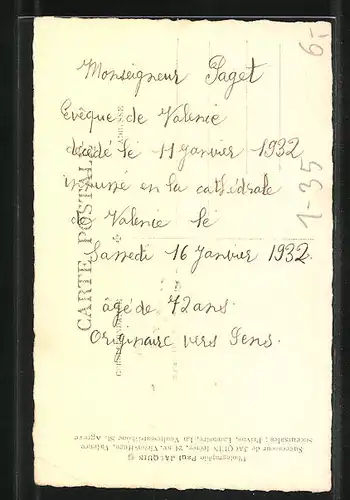 Monseigneur Paget
Evêque de Valence
décédé le 11 Janvier 1932
inhumé en la cathédrale
de Valence le
Samedi 16 Janvier 1932.
âgé de 72 ans.
Originaire vers Sens.
6,-
1-35
CARTE POSTALE
Photographie Paul JACQUIN
Successeur de JACQUIN frères, 21 av. Victor-Hugo, Valence
Succursales : Privas, Lamastre, La Voulte-sur-Rhône, St. Agrève